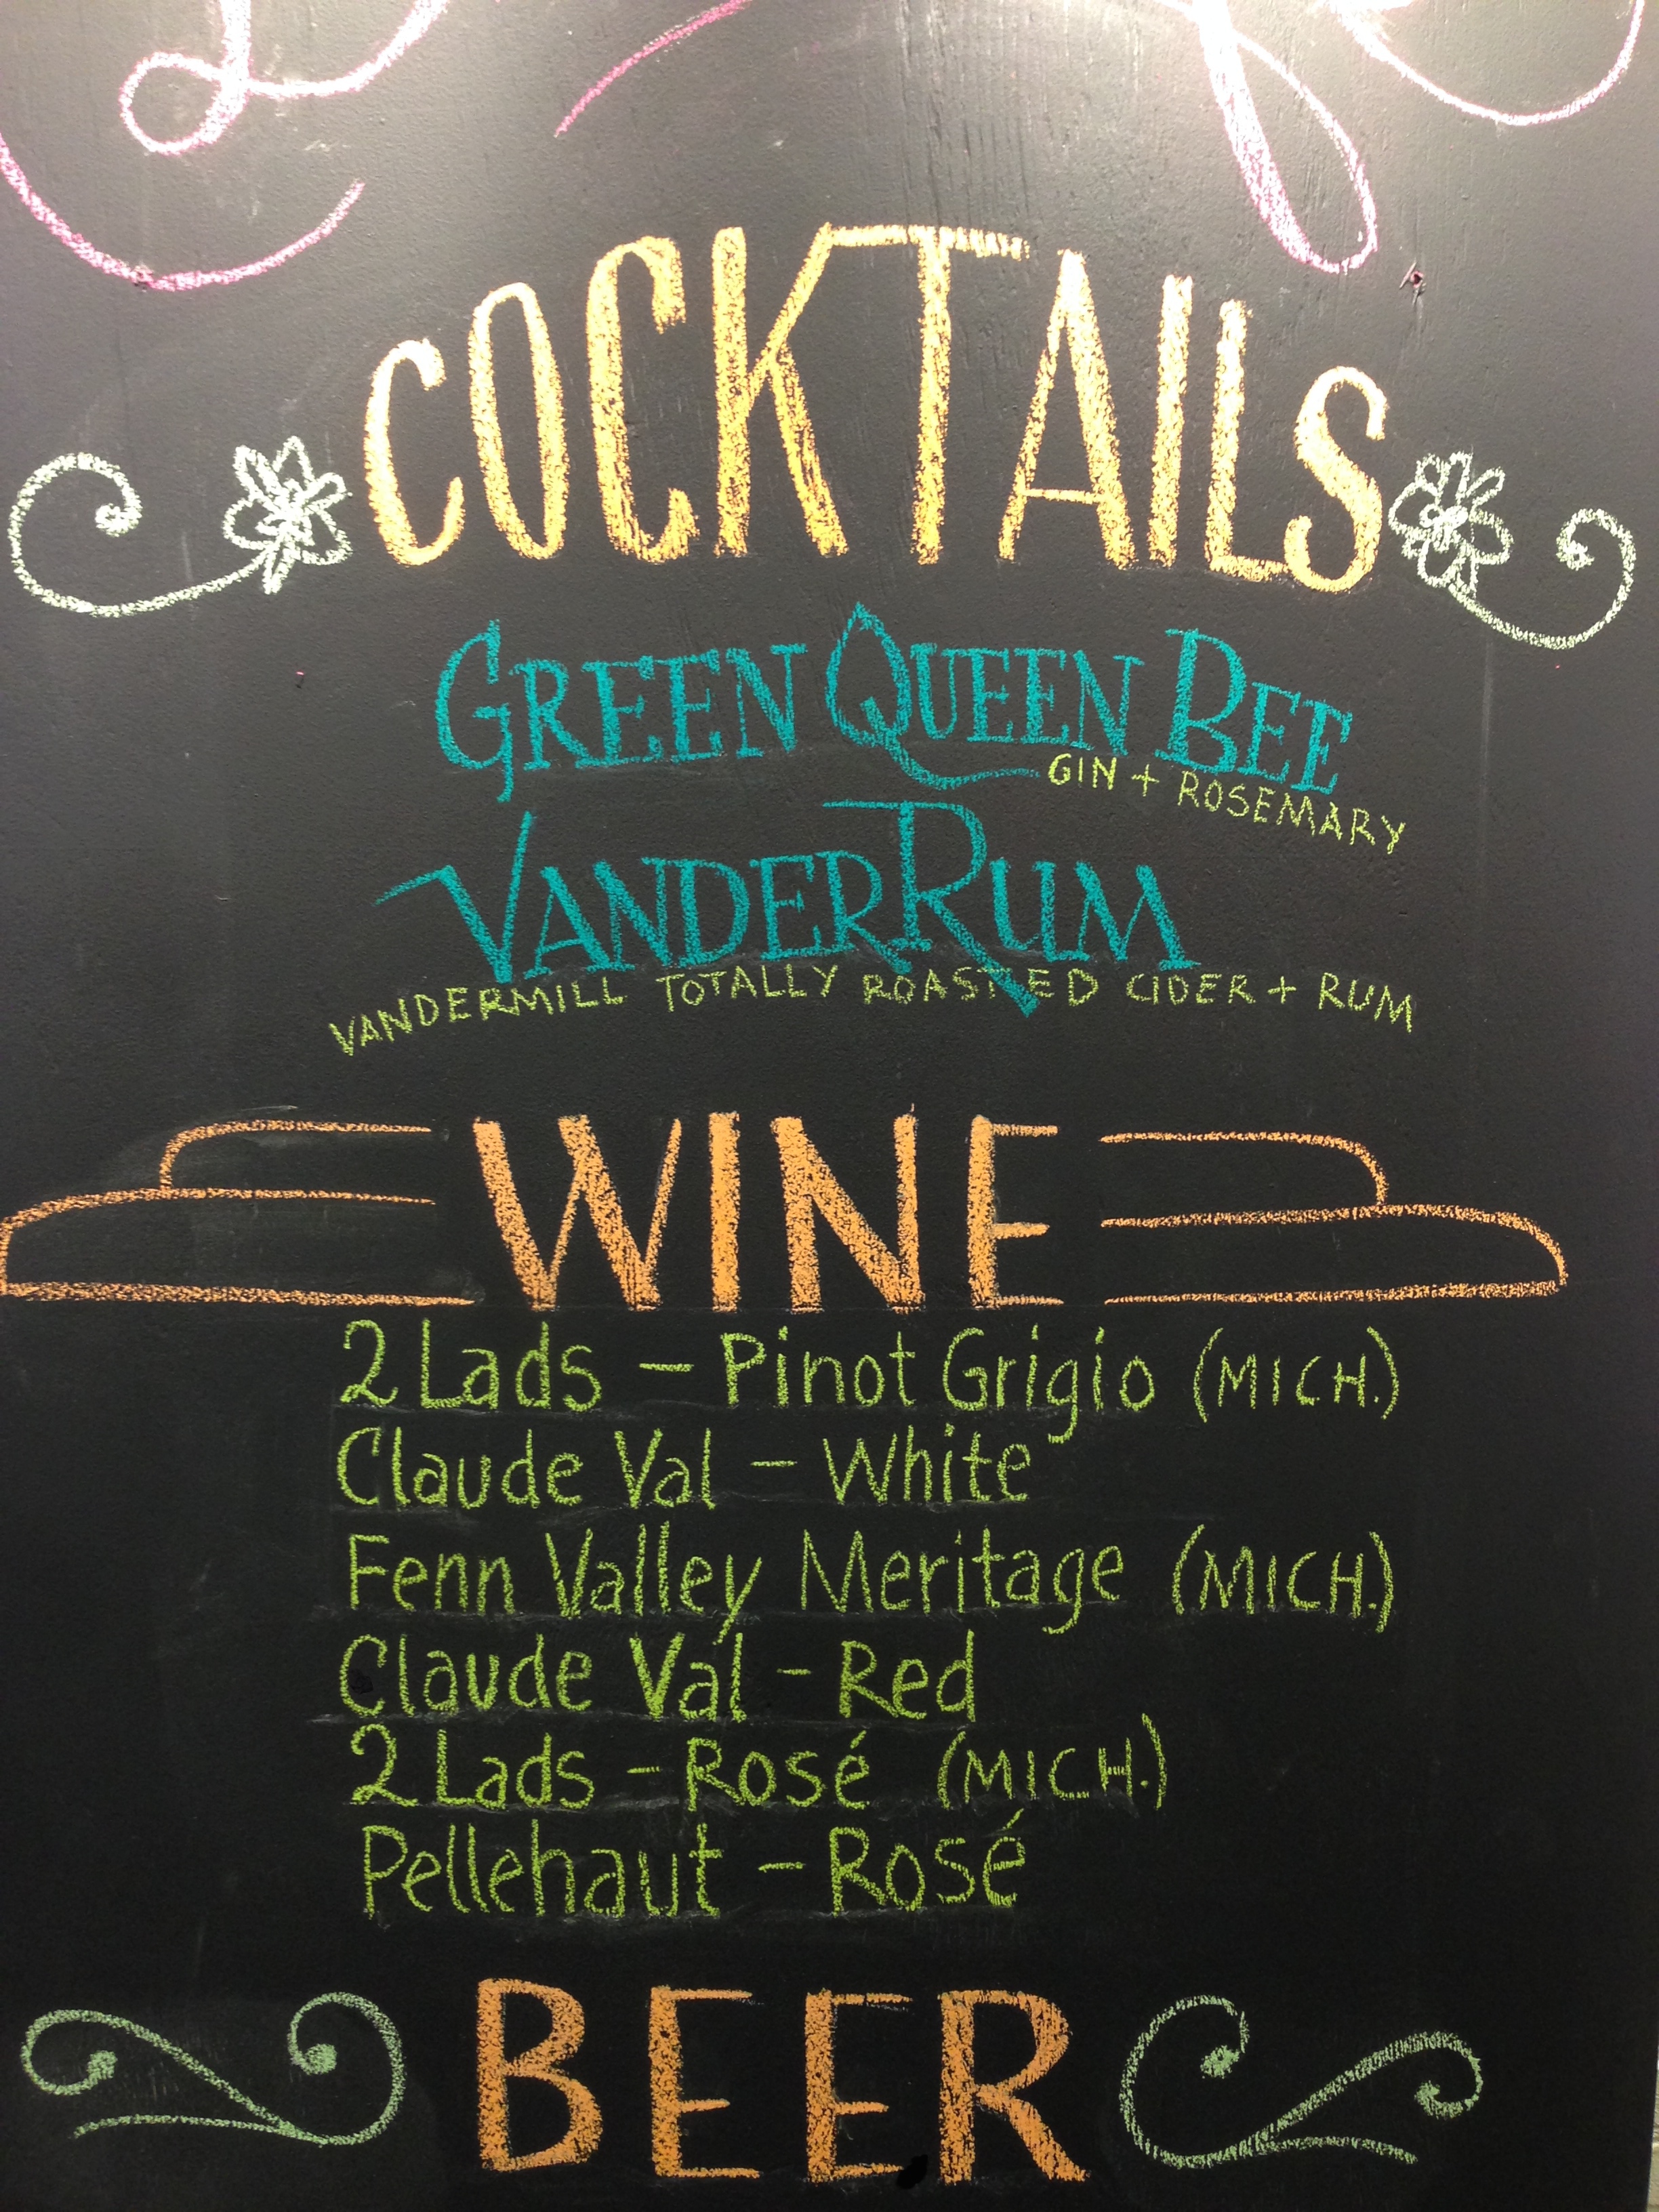 COCKTAILS
GREEN QUEEN BEE
GIN + ROSEMARY
VANDERRUM
VANDERMILL TOTALLY ROASTED CIDER + RUM
WINE
2 Lads - Pinot Grigio (MICH.)
Claude Val - White
Fenn Valley Meritage (MICH.)
Claude Val - Red
2 Lads - Rosé (MICH.)
Pellehaut - Rosé
BEER